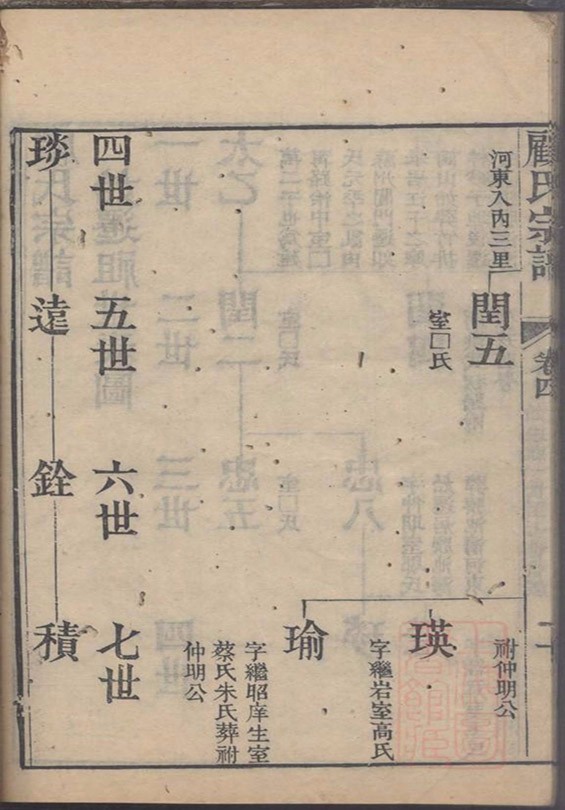 顧氏宗譜
卷四
河東入內三里
閏五
室□氏
祔仲明公
瑛
字繼岩室高氏
瑜
字繼昭庠生室
蔡氏朱氏葬祔
仲明公
四世
五世
六世
七世
琰
遠
銓
積